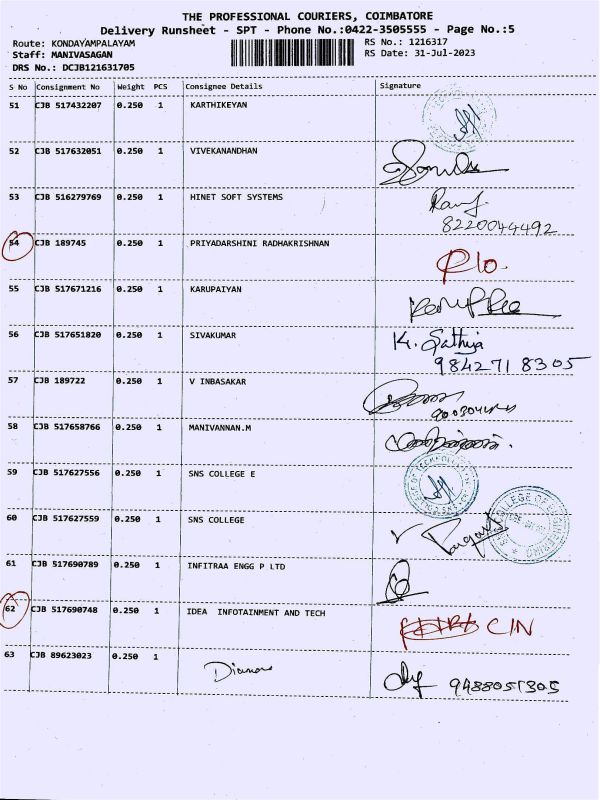 THE PROFESSIONAL COURIERS, COIMBATORE
Delivery Runsheet - SPT - Phone No.:0422-3505555 - Page No.:5
Route: KONDAYAMPALAYAM RS No.: 1216317
Staff: MANIVASAGAN RS Date: 31-Jul-2023
DRS No.: DCJB121631705
S No Consignment No Weight PCS Consignee Details Signature
51 CJB 517432207 0.250 1 KARTHIKEYAN
52 CJB 517632051 0.250 1 VIVEKANANDHAN
53 CJB 516279769 0.250 1 HINET SOFT SYSTEMS
8220044492
54 CJB 189745 0.250 1 PRIYADARSHINI RADHAKRISHNAN
55 CJB 517671216 0.250 1 KARUPAIYAN
56 CJB 517651820 0.250 1 SIVAKUMAR K. Sathya
9842718305
57 CJB 189722 0.250 1 V INBASAKAR
58 CJB 517658766 0.250 1 MANIVANNAN.M
59 CJB 517627556 0.250 1 SNS COLLEGE E
60 CJB 517627559 0.250 1 SNS COLLEGE
61 CJB 517690789 0.250 1 INFITRAA ENGG P LTD
62 CJB 517690748 0.250 1 IDEA INFOTAINMENT AND TECH CIN
63 CJB 89623023 0.250 1
9488051305